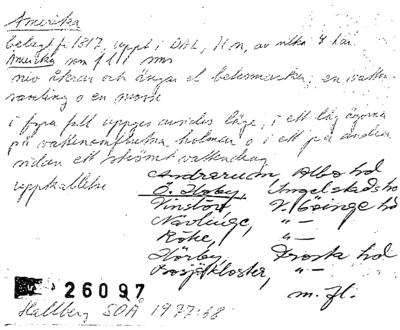 Amerika
belagt fr. 1817, uppt. i DAL, 11 n, av vilka 4 har
Amerika som f l i sms
niv åkrar och ängar el betesmarker, en vatten-
samling o en mosse
i fyra fall uppges avsides läge, i ett låg ägorna
på vattenomflutna holmar o i ett på andra
sidan ett strömt vattendrag
uppkallelse
Andrarum, Albo hd
Ö. Hoby, Ingelstads hd
Vinslöv, V. Göinge hd
Nävlinge, –"–
Röke, –"–
Hörby, Frosta hd
Bosjökloster, –"–
m. fl.
26097
Hallberg SOÅ 1977:38